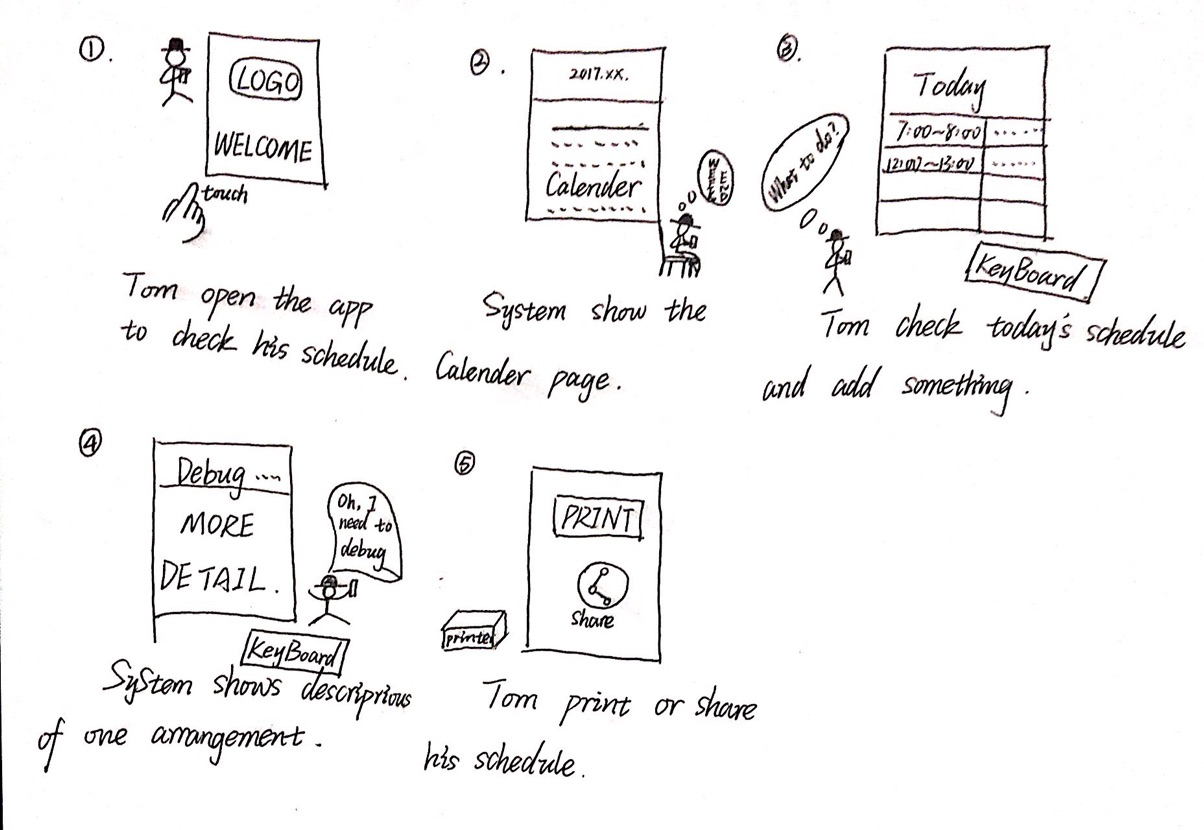 ①.
LOGO
WELCOME
touch
Tom open the app
to check his schedule.
②.
2017.XX.
Calender
System show the
Calender page.
③.
Today
7:00~8:00
12:00~13:00
What to do?
KeyBoard
Tom check today's schedule
and add something.
④
Debug
MORE
DETAIL.
Oh, I
need to
debug
KeyBoard
SyStem shows descriprious
of one arrangement.
⑤
PRINT
share
printer
Tom print or share
his schedule.